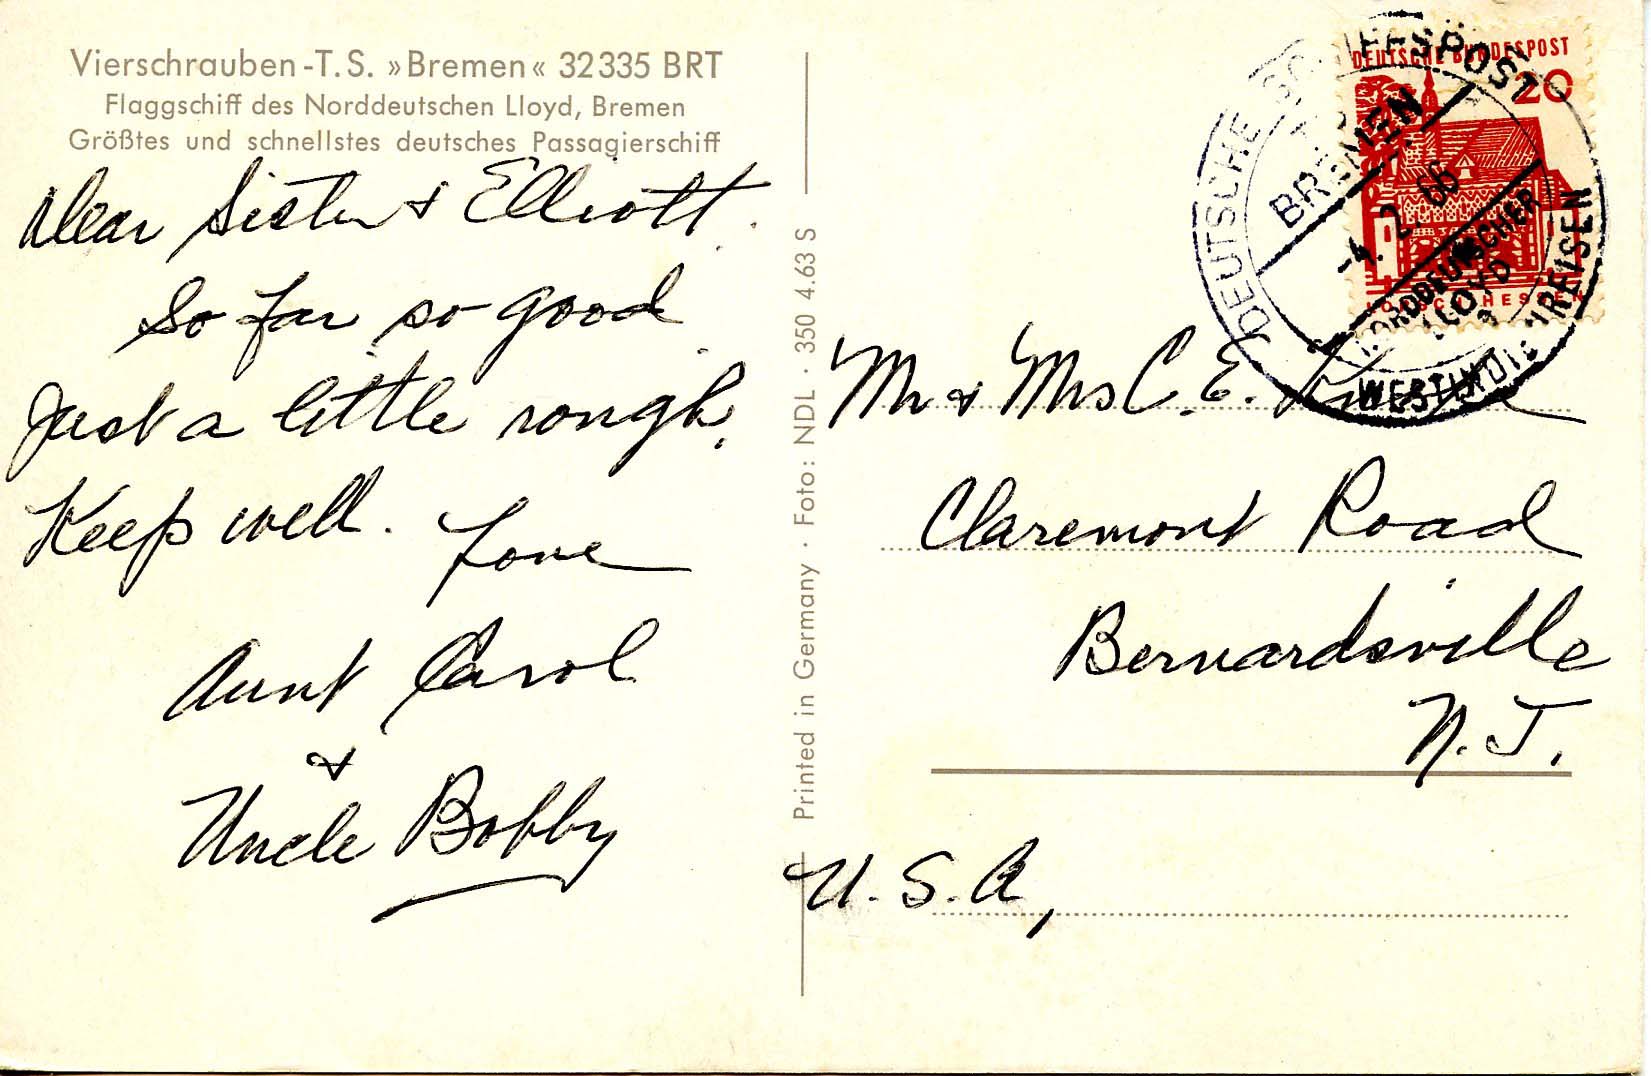 Vierschrauben-T.S. »Bremen« 32335 BRT
Flaggschiff des Norddeutschen Lloyd, Bremen
Größtes und schnellstes deutsches Passagierschiff
Dear Sister & Elliott.
So far so good
Just a little rough.
Keep well. Love
Aunt Carol
&
Uncle Bobby
Printed in Germany · Foto: NDL · 350 4.63 S
DEUTSCHE BUNDESPOST
20
LORSCH HESSEN
DEUTSCHE SCHIFFSPOST
BREMEN
-4. 2. 66
NORDDEUTSCHER
LLOYD
Mr & Mrs C. E.
Claremont Road
Bernardsville
N. J.
U. S. A,